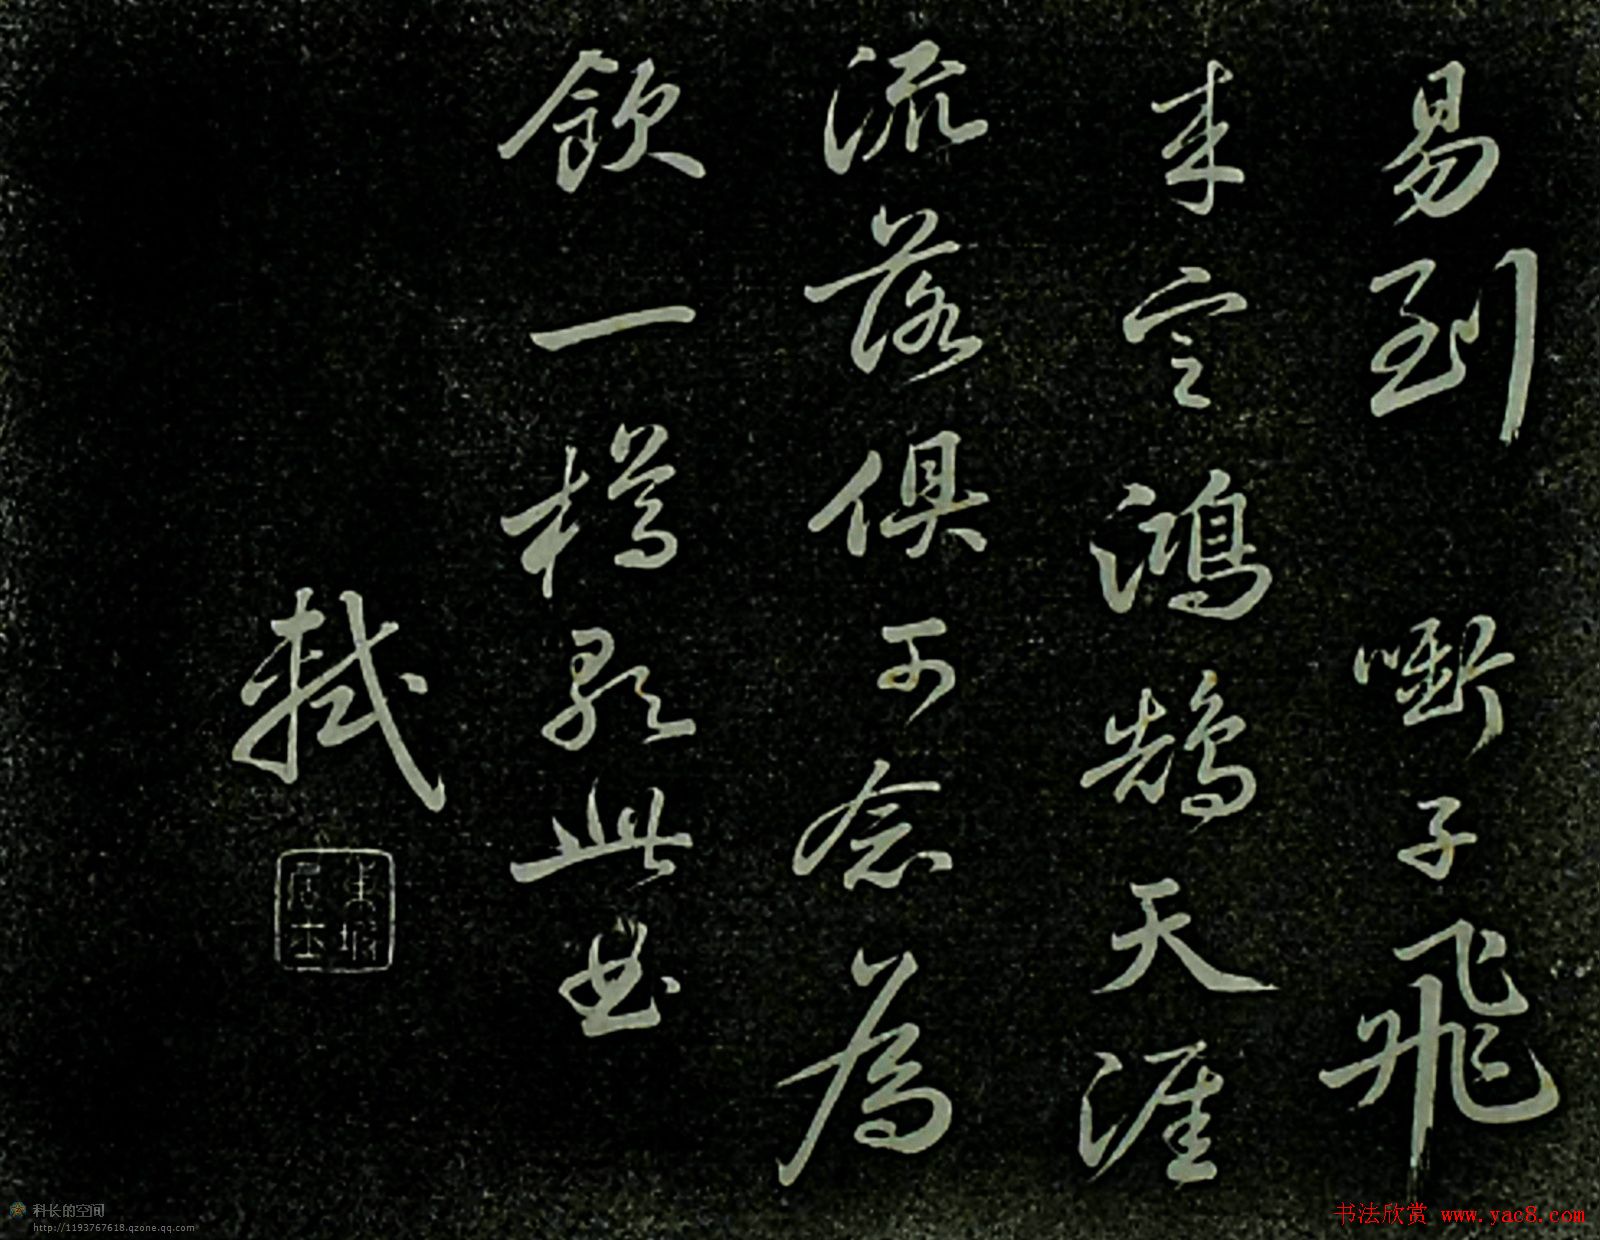 易到啣子飛
来定鴻鵠天涯
流落俱可念為
飲一樽歌此曲
軾
東坡居士
科长的空间
http://1193767618.qzone.qq.com
书法欣赏 www.yac8.com